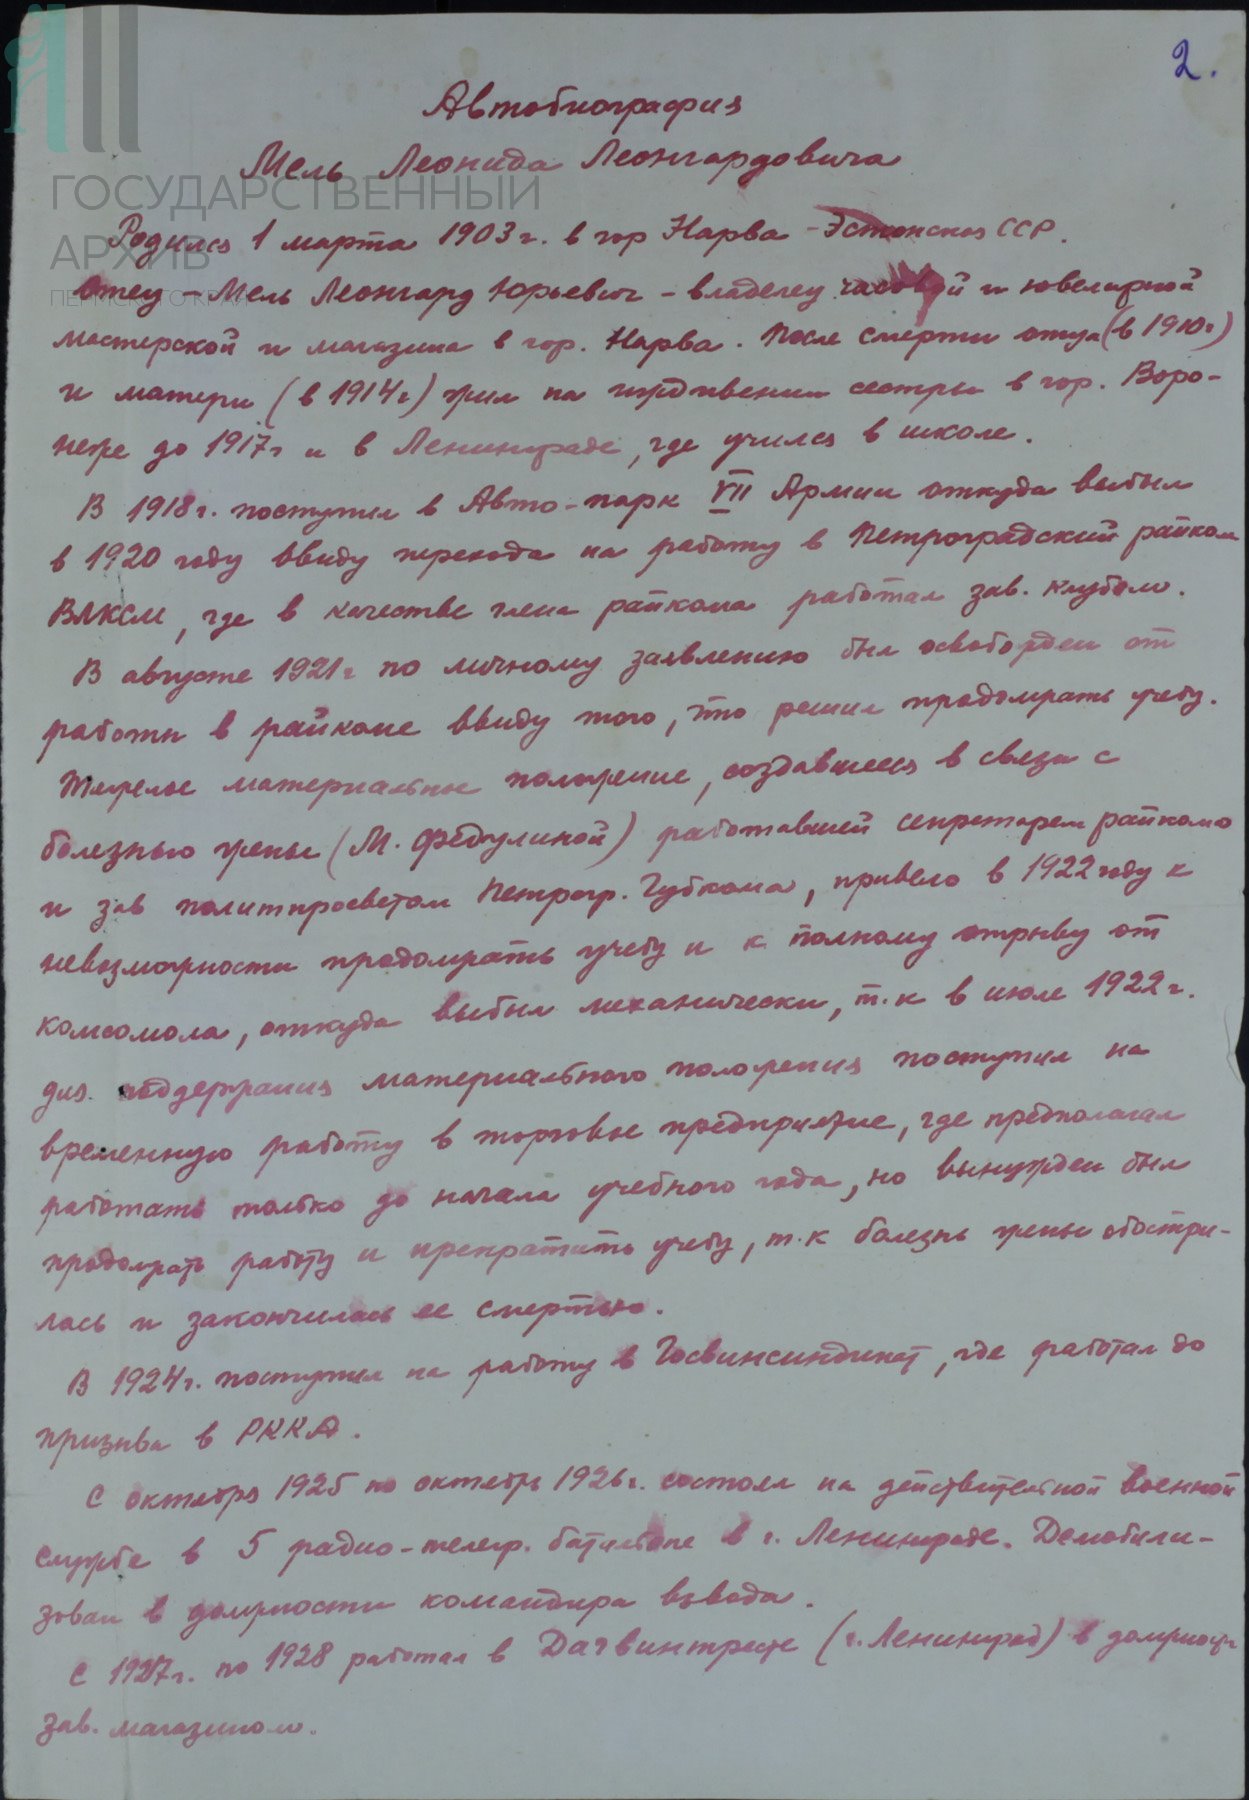 2.
Автобиография
Мель Леонида Леонгардовича
ГОСУДАРСТВЕННЫЙ
АРХИВ
ПЕРМСКОГО КРАЯ
Родился 1 марта 1903 г. в гор Нарва - Эстонская ССР.
Отец - Мель Леонгард Юрьевич - владелец часовой и ювелирной
мастерской и магазина в гор. Нарва. После смерти отца (в 1910г)
и матери (в 1914 г) жил на иждивении сестры в гор. Воро-
неже до 1917г и в Ленинграде, где учился в школе.
В 1918 г. поступил в Авто-парк VII Армии откуда выбыл
в 1920 году ввиду перехода на работу в Петроградский райком
ВЛКСМ, где в качестве члена райкома работал зав. клубом.
В августе 1921 г по личному заявлению был освобожден от
работы в райкоме ввиду того, что решил продолжать учебу.
Тяжелое материальное положение, создавшееся в связи с
болезнью жены (М. Федулиной) работавшей секретарем райкома
и зав политпросветом Петрогр. Губкома, привело в 1922 году к
невозможности продолжать учебу и к полному отрыву от
комсомола, откуда выбыл механически, т.к в июле 1922 г.
для поддержания материального положения поступил на
временную работу в торговое предприятие, где предполагал
работать только до начала учебного года, но вынужден был
продолжать работу и прекратить учебу, т.к болезнь жены обостри-
лась и закончилась ее смертью.
В 1924 г. поступил на работу в Госвинсиндикат, где работал до
призыва в РККА.
С октября 1925 по октябрь 1926 г. состоял на действительной военной
службе в 5 радио-телегр. батальоне в г. Ленинграде. Демобили-
зован в должности командира взвода.
С 1927 г. по 1928 работал в Дагвинтресте (г. Ленинград) в должности
зав. магазином.